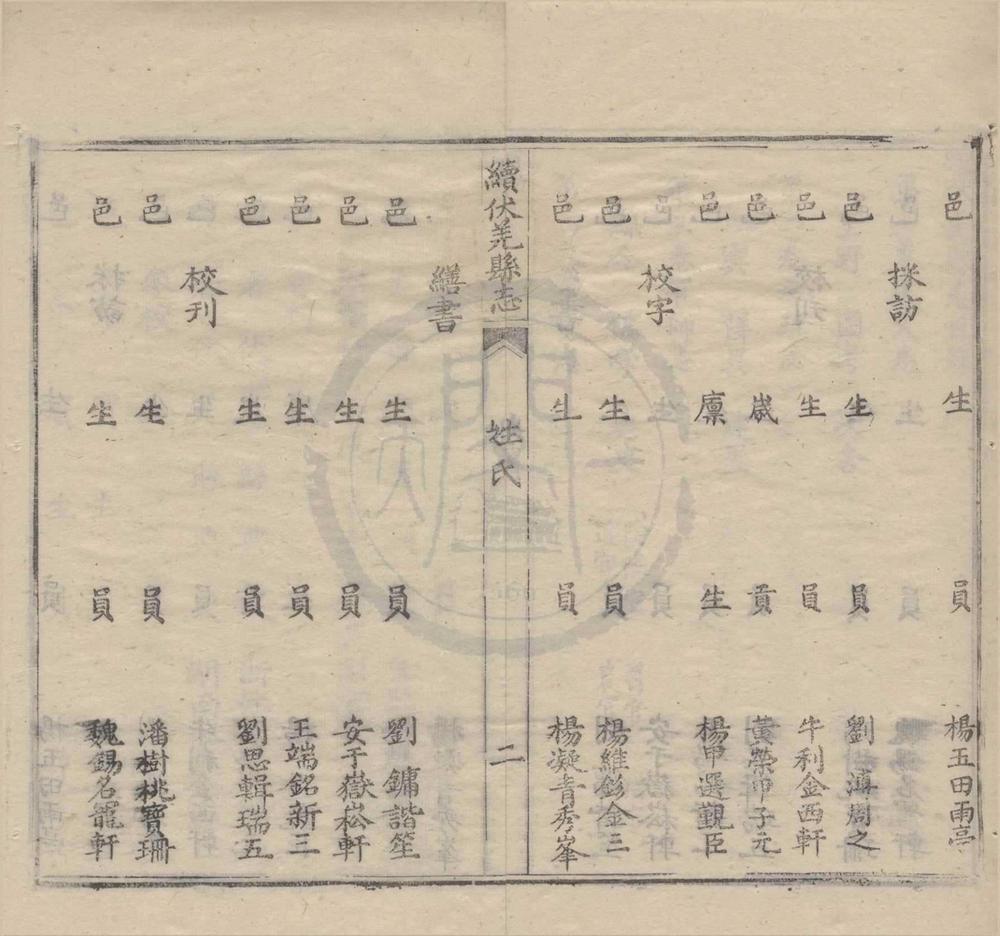 邑生員楊玉田雨亭
採訪
邑生員劉濵周之
邑生員牛利金西軒
邑歲貢黃榮甲子元
邑廪生楊甲選覲臣
校字
邑生員楊維彭金三
邑生員楊凝青秀峯
續伏羌縣志
姓氏
二
繕書
邑生員劉鏞諧笙
邑生員安于嶽崧軒
邑生員王端銘新三
邑生員劉思輯瑞五
校刊
邑生員潘樹桃寶珊
邑生員魏錫名寵軒